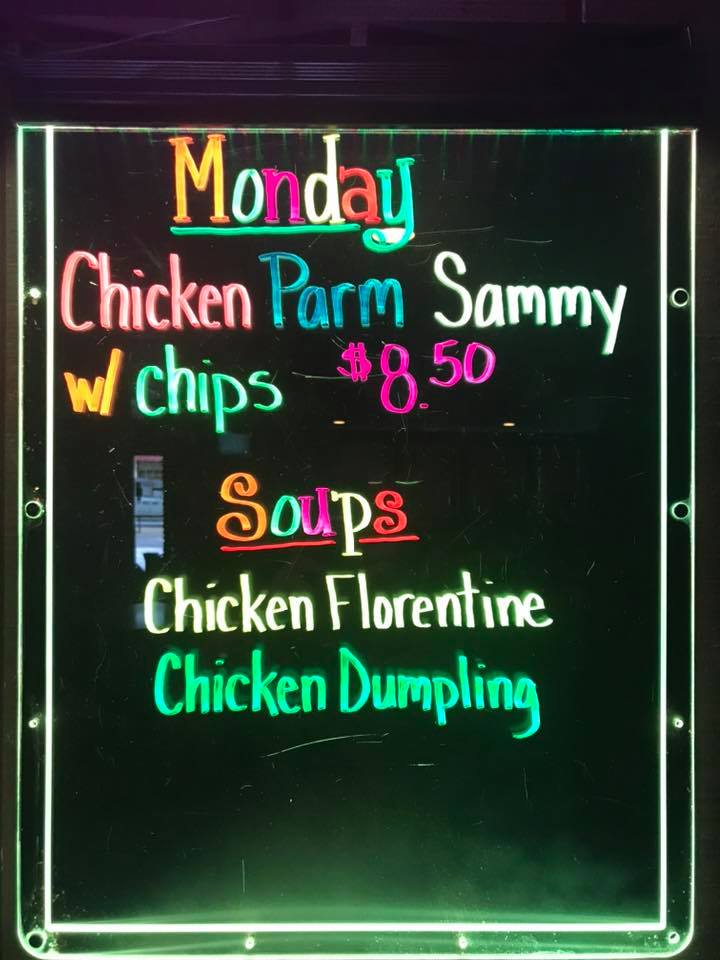 Monday
Chicken Parm Sammy
w/ chips $8.50
Soups
Chicken Florentine
Chicken Dumpling